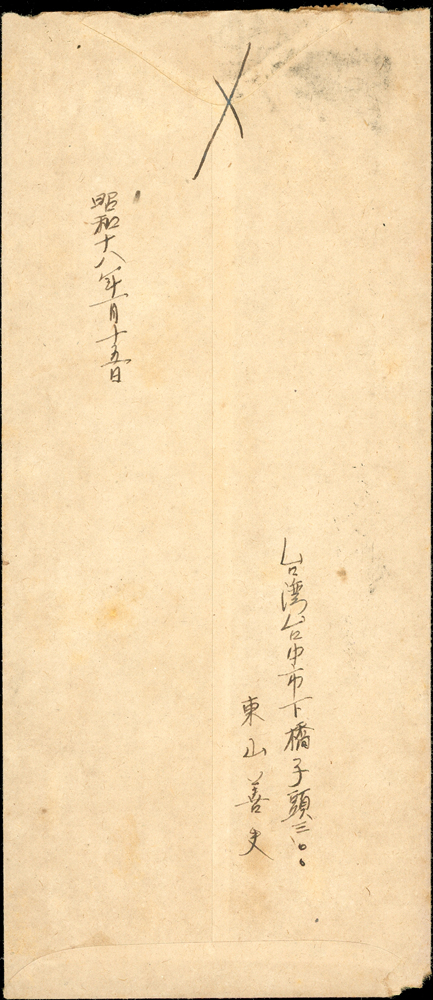 台湾台中市下橋子頭三〇〇
東山善夫
昭和十八年一月十五日